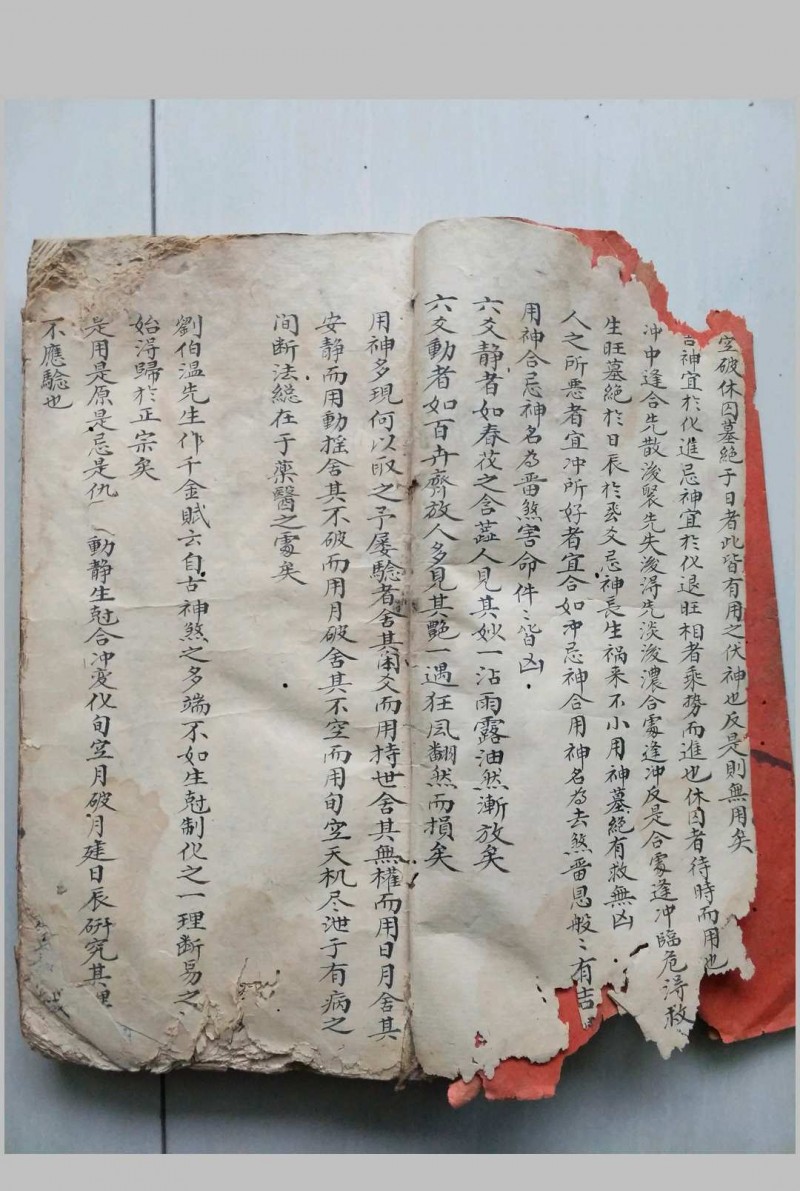 空破休囚墓絕于日者此皆有用之伏神也反是則無用矣
神宜於化進忌神宜於化退旺相者乘勢而進也休囚者待時而用也
冲中逢合先散後聚先失後得先淡後濃合處逢冲反是合處逢冲臨危得救
生旺墓絕於日辰於爻忌神長生祸来不小用神墓絕有救無凶
人之所悪者宜冲所好者宜合如冲忌神合用神名為去煞畱恩般〻有吉
用神合忌神名為畱煞害命件〻皆凶
六爻静者如春花之含蕋人見其妙一沾雨露油然漸放矣
六爻動者如百卉齊放人多見其艷一遇狂风翻然而損矣
用神多現何以取之予屡驗者舍其闲爻而用持世舍其無權而用日月舍其
安静而用動摇舍其不破而用月破舍其不空而用旬空天机尽泄于有病之
间断法緫在于藥醫之處矣
劉伯温先生作千金賦云自古神煞之多端不如生尅制化之一理断易之
始得歸於正宗矣
是用是原是忌是仇動静生尅合冲变化旬空月破月建日辰研究其理
不應驗也